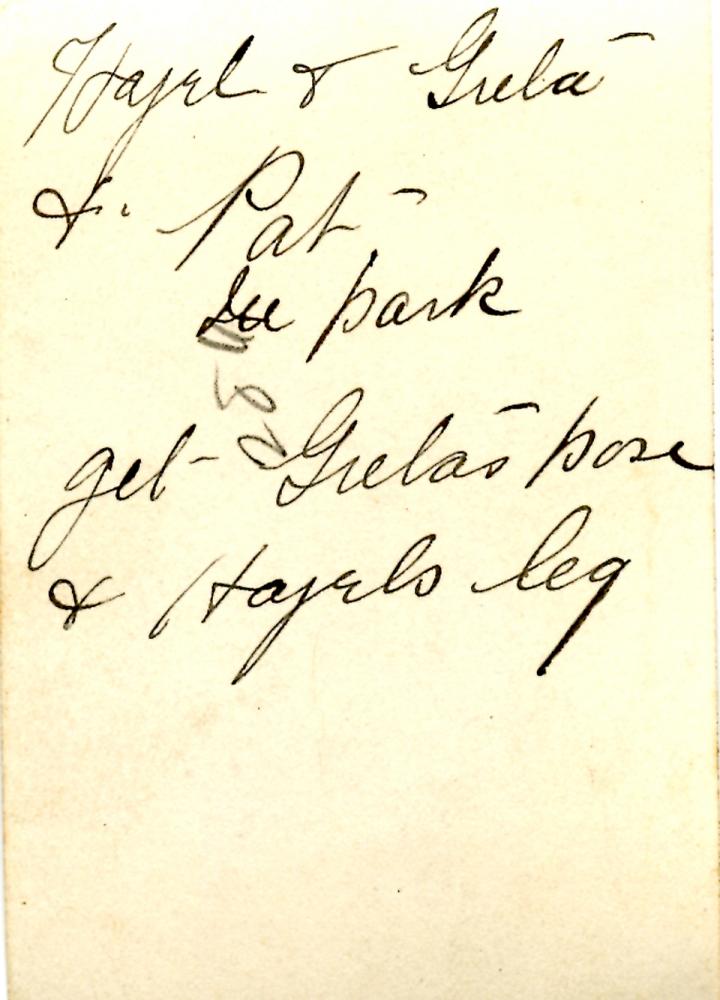 Hazel & Greta
& Pat
In park
get Greta's pose
& Hazels leg